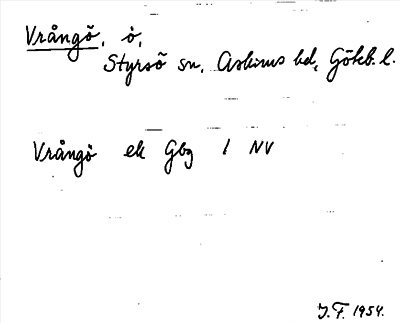 Vrångö, ö,
Styrsö sn, Askims hd, Göteb. l.
Vrångö ek Gbg 1 NV
J.F. 1954.